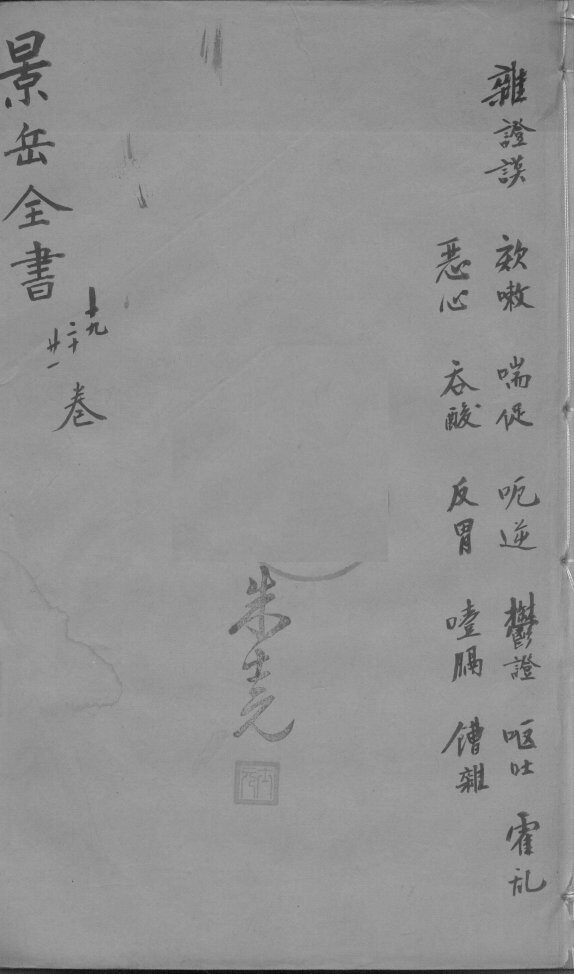 雜證謨
欬嗽 喘促 呃逆 鬱證 呕吐 霍乱
惡心 吞酸 反胃 噎膈 𩞄雜
朱
景岳全書
十九
二十
廿一
卷